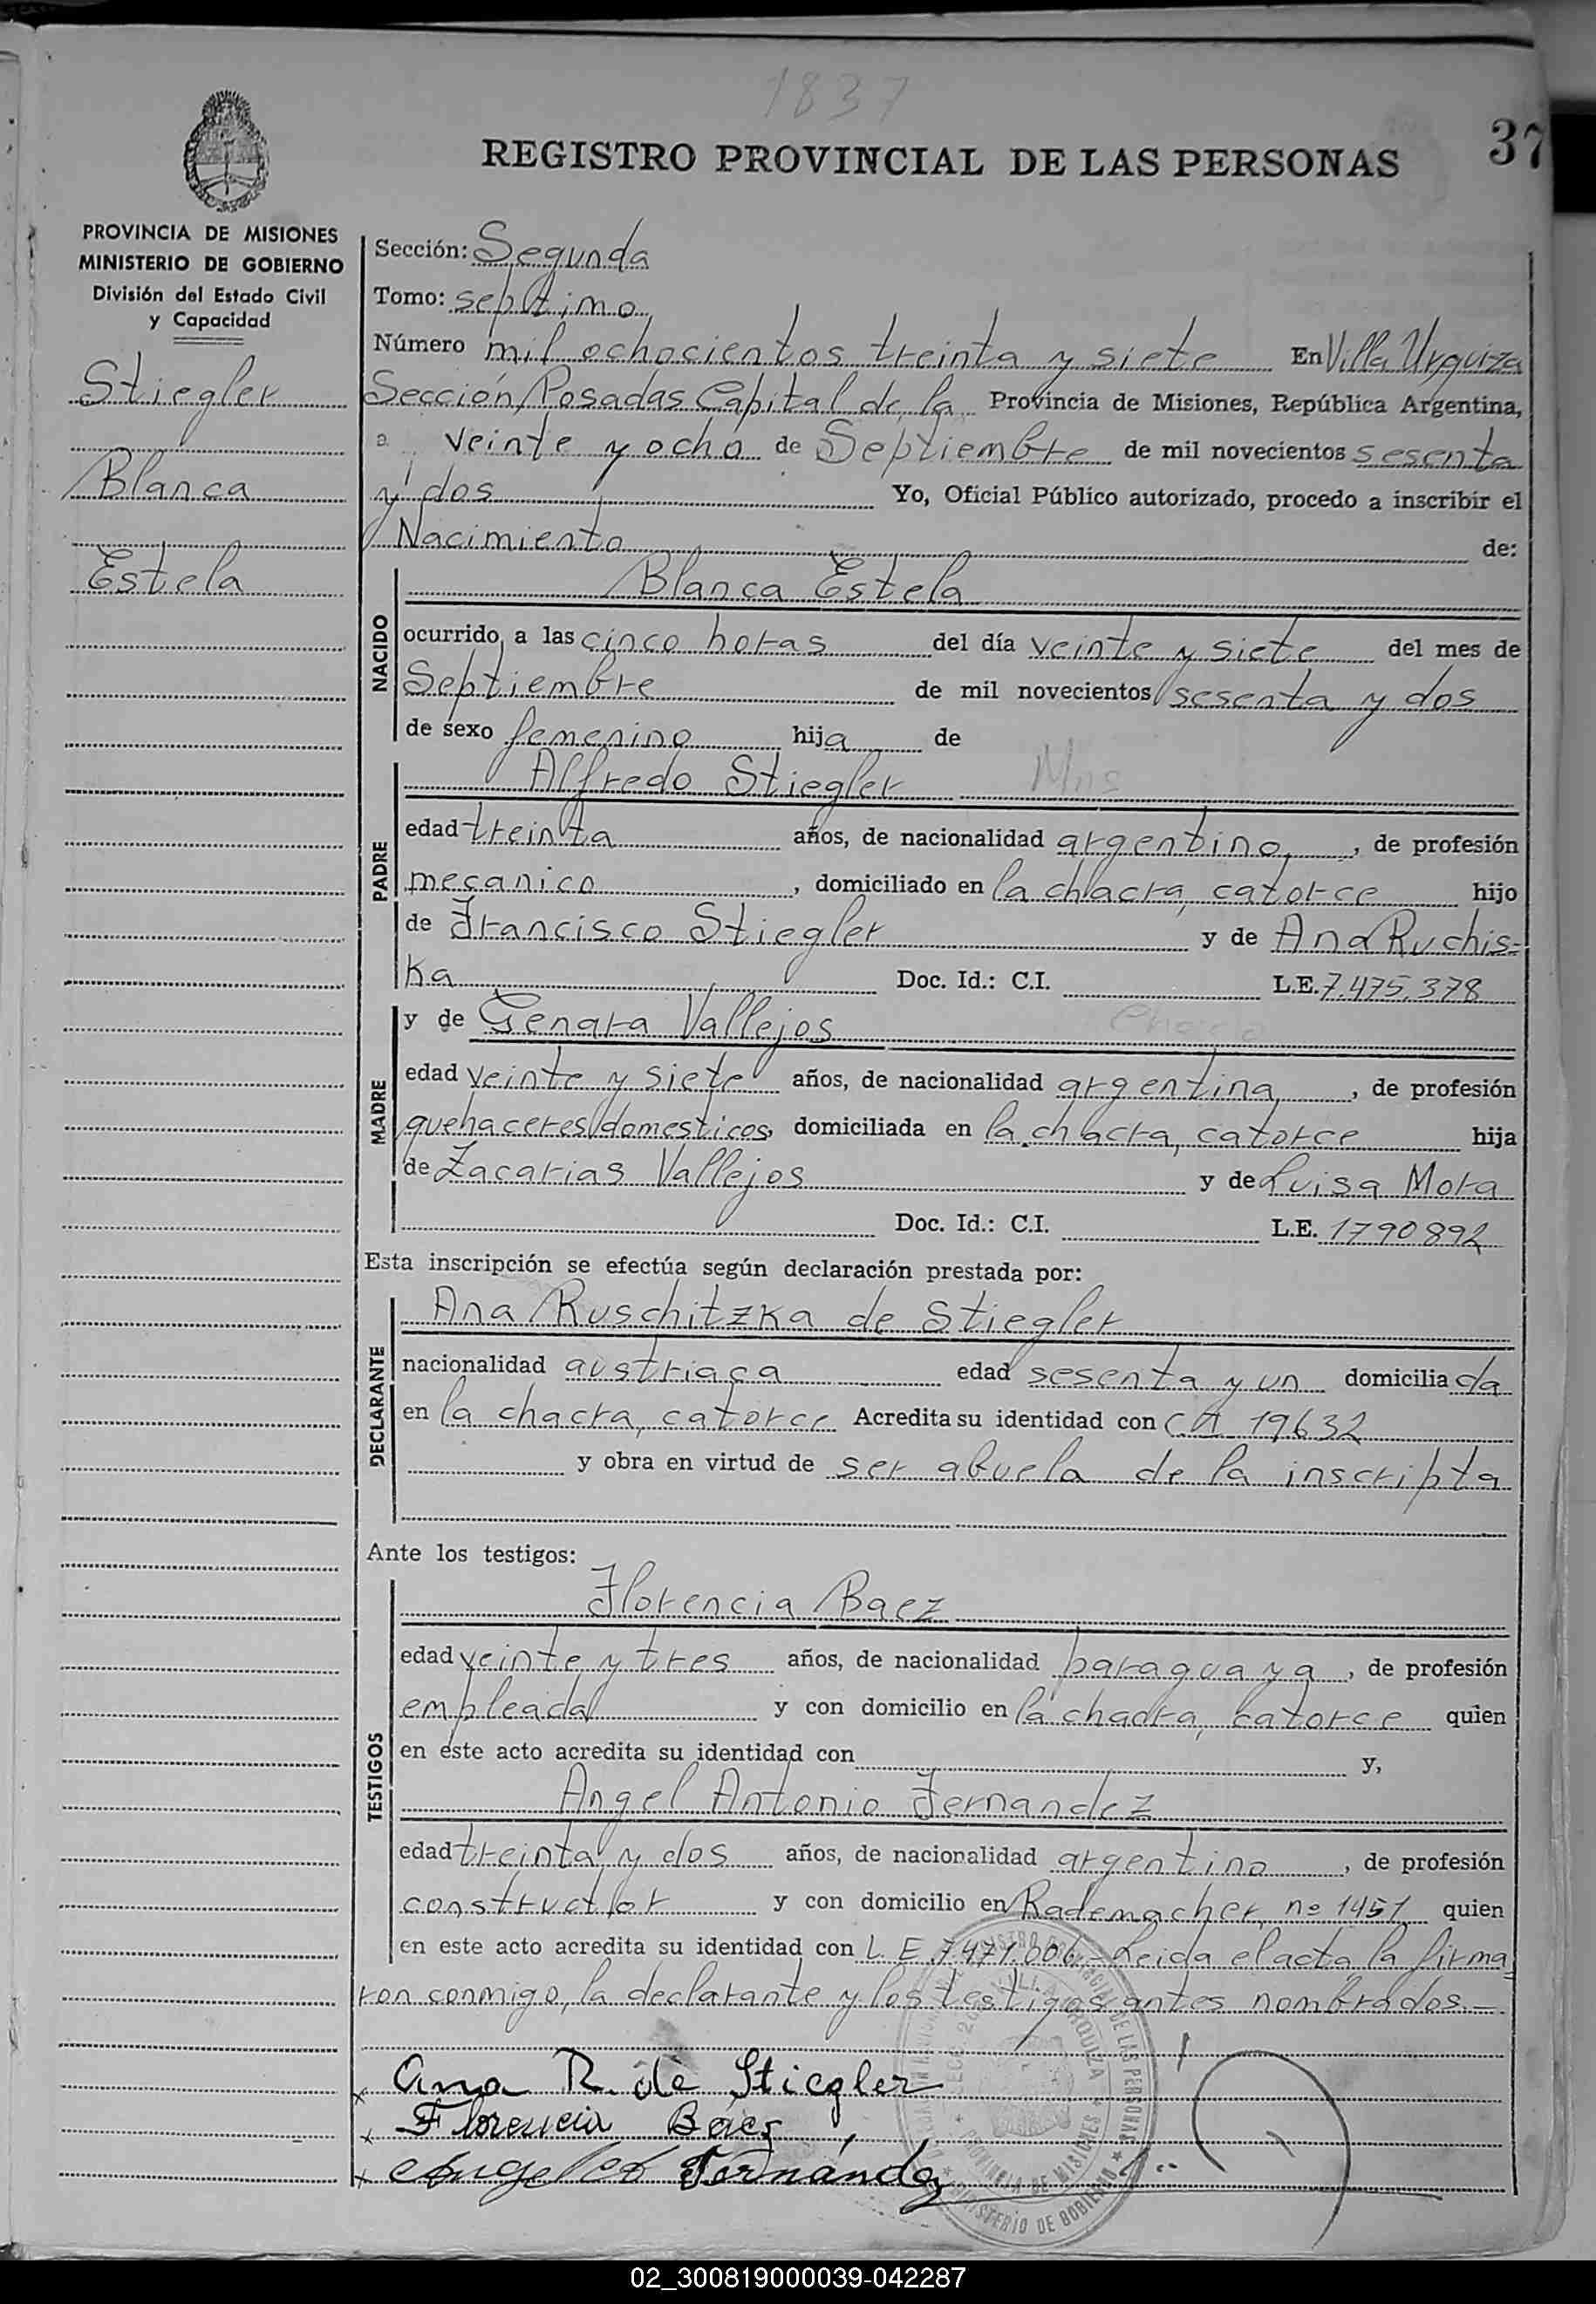 1837
REGISTRO PROVINCIAL DE LAS PERSONAS 37
PROVINCIA DE MISIONES
MINISTERIO DE GOBIERNO
División del Estado Civil
y Capacidad
Stiegler
Blanca
Estela
Sección: Segunda
Tomo: septimo
Número mil ochocientos treinta y siete En Villa Urquiza
Sección Posadas Capital de la Provincia de Misiones, República Argentina,
a veinte y ocho de Septiembre de mil novecientos sesenta
y dos Yo, Oficial Público autorizado, procedo a inscribir el
Nacimiento de:
NACIDO
Blanca Estela
ocurrido a las cinco horas del día veinte y siete del mes de
Septiembre de mil novecientos sesenta y dos
de sexo femenino hija de
PADRE
Alfredo Stiegler Mns
edad treinta años, de nacionalidad argentino, de profesión
mecanico, domiciliado en la chacra, catorce hijo
de Francisco Stiegler y de Ana Ruchis=
ka Doc. Id.: C.I. L.E. 7.475.378
MADRE
y de Genara Vallejos Chaco
edad veinte y siete años, de nacionalidad argentina, de profesión
quehaceres domesticos, domiciliada en la chacra, catorce hija
de Zacarias Vallejos y de Luisa Mora
Doc. Id.: C.I. L.E. 1790892
Esta inscripción se efectúa según declaración prestada por:
DECLARANTE
Ana Ruschitzka de Stiegler
nacionalidad austriaca edad sesenta y un domiciliada
en la chacra, catorce Acredita su identidad con C.I. 19632
y obra en virtud de ser abuela de la inscripta
Ante los testigos:
TESTIGOS
Florencia Baez
edad veinte y tres años, de nacionalidad paraguaya, de profesión
empleada y con domicilio en la chacra, catorce quien
en este acto acredita su identidad con y,
Angel Antonio Fernandez
edad treinta y dos años, de nacionalidad argentino, de profesión
constructor y con domicilio en Rademacher, nº 1451 quien
en este acto acredita su identidad con L. E. 7.471.006 - Leida el acta la firma
ron conmigo, la declarante y los testigos antes nombrados.-
x Ana R. de Stiegler
x Florencia Báez
x Fernández
REGISTRO PROVINCIAL DE LAS PERSONAS
SECC. 2da. VILLA URQUIZA
PROVINCIA DE MISIONES
MINISTERIO DE GOBIERNO
02_300819000039-042287